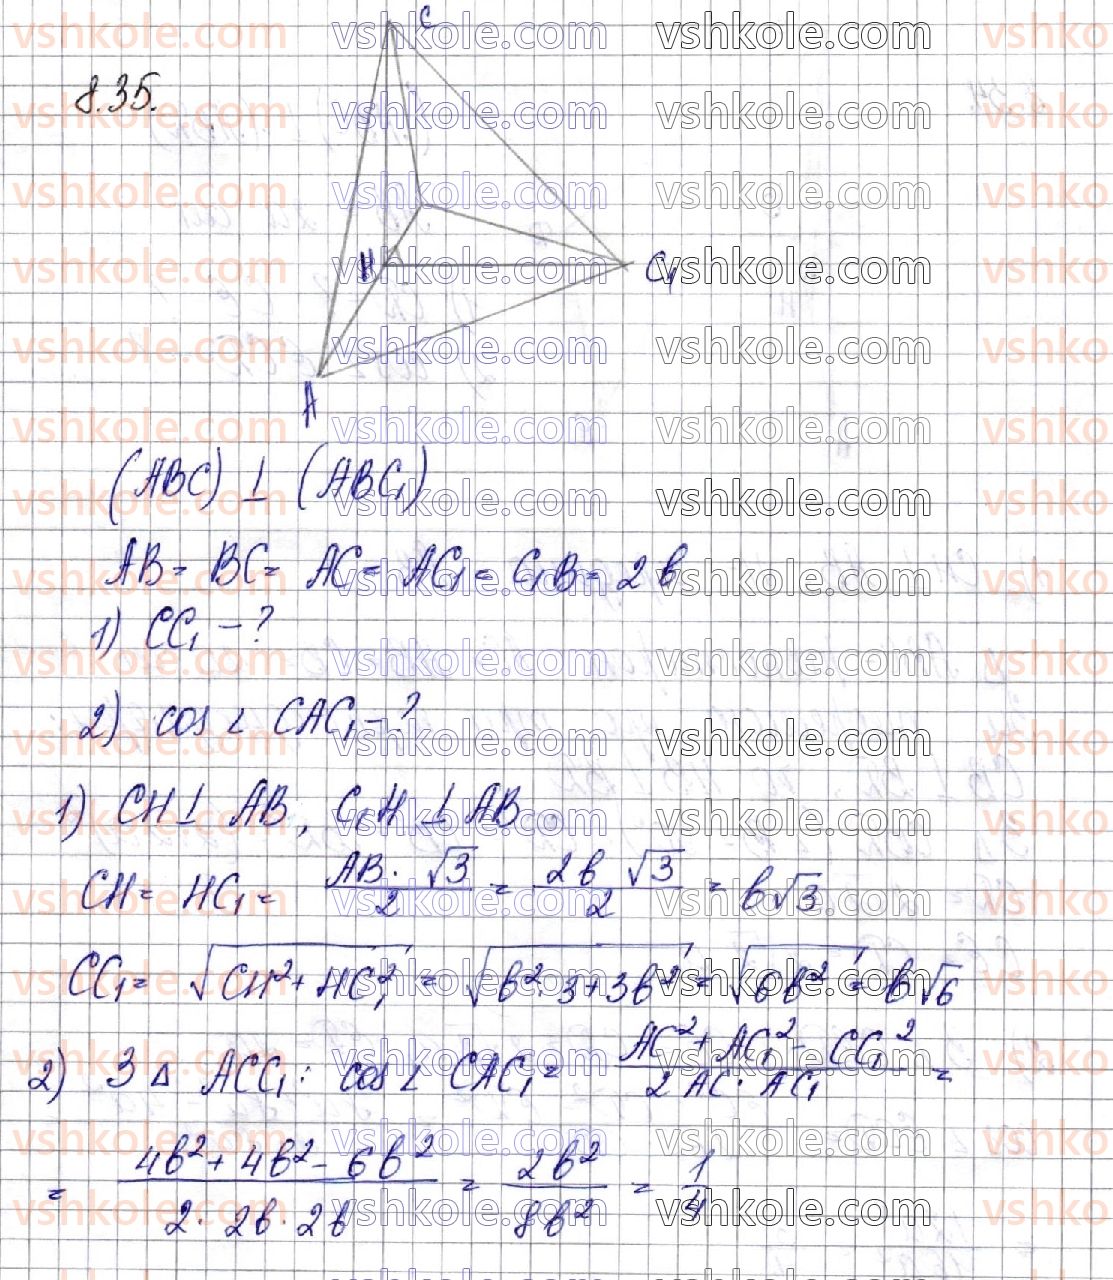 8.35.
C
H
C₁
A
(ABC) ⊥ (ABC₁)
AB = BC = AC = AC₁ = C₁B = 2b
1) CC₁ - ?
2) cos ∠ CAC₁ - ?
1) CH ⊥ AB, C₁H ⊥ AB
CH = HC₁ = AB·√3/2 = 2b √3/2 = b√3
CC₁ = √(CH² + HC₁²) = √(b²·3 + 3b²) = √(6b²) = b√6
2) З Δ ACC₁: cos ∠ CAC₁ = (AC² + AC₁² - CC₁²)/(2AC·AC₁) =
= (4b² + 4b² - 6b²)/(2·2b·2b) = 2b²/8b² = 1/4
vshkole.com